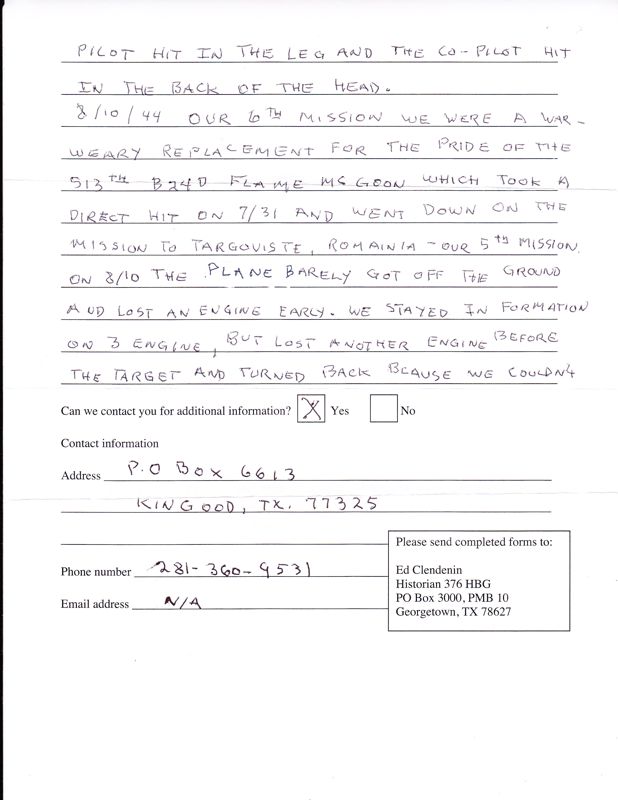 PILOT HIT IN THE LEG AND THE CO-PILOT HIT
IN THE BACK OF THE HEAD.
8/10/44 OUR 6TH MISSION WE WERE A WAR-
WEARY REPLACEMENT FOR THE PRIDE OF THE
513TH B24D FLAME MCGOON WHICH TOOK A
DIRECT HIT ON 7/31 AND WENT DOWN ON THE
MISSION TO TARGOVISTE, ROMAINIA - OUR 5TH MISSION.
ON 8/10 THE PLANE BARELY GOT OFF THE GROUND
AND LOST AN ENGINE EARLY. WE STAYED IN FORMATION
ON 3 ENGINE, BUT LOST ANOTHER ENGINE BEFORE
THE TARGET AND TURNED BACK BCAUSE WE COULDN'T
Can we contact you for additional information? X Yes No
Contact information
Address P.O BOX 6613
KINGOOD, TX. 77325
Please send completed forms to:
Phone number 281-360-9531
Email address N/A
Ed Clendenin
Historian 376 HBG
PO Box 3000, PMB 10
Georgetown, TX 78627